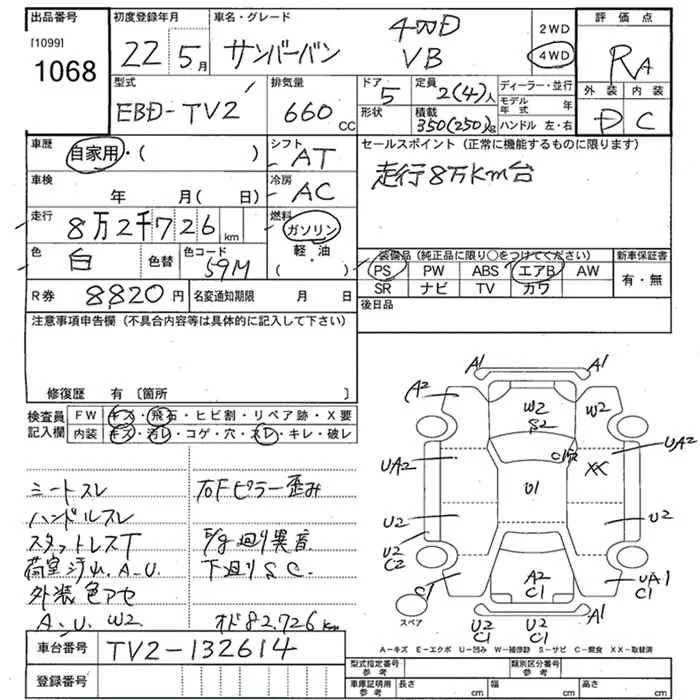 出品番号 初度登録年月 車名・グレード 評価点
[1099]
1068
22 5月 サンバーバン 4WD VB 2WD 4WD RA
型式 排気量 ドア 定員 ディーラー・並行 外装 内装
EBD-TV2 660 CC 5 2(4)人 モデル年式 年 D C
形状 積載 350(250)kg ハンドル 左・右
車歴 自家用・( ) シフト AT セールスポイント(正常に機能するものに限ります)
車検 年 月( 日) 冷房 AC 走行8万Km台
走行 8万2千726km 燃料 ガソリン 軽・油 ( )
色 白 色替 色コード 59M
装備品(純正品に限り○をつけてください) 新車保証書
PS PW ABS エアB AW 有・無
SR ナビ TV カワ
R券 8820円 名変通知期限 月 日 後日品
注意事項申告欄(不具合内容等は具体的に記入して下さい)
修復歴 有〔箇所 〕
検査員記入欄 FW キズ・飛石・ヒビ割・リペア跡・X要
内装 キズ・汚レ・コゲ・穴・スレ・キレ・破レ
シートスレ 右Fピラー歪み
ハンドルスレ
スタットレスT E/g廻り異音
荷室汚れ.A-U. 下廻りS.C.
外装色アセ
A.U.W2 オド82.726km
A1 A1
A2 W2 W2
S2
UA2 XX UA2
U1
U2 U2
U2 C2
C1 A2 C1 UA1 C1
U2 C1 U2 C1 A1
スペア
A-キズ E-エクボ U-凹み W-補修跡 S-サビ C-腐食 XX-取替済
車台番号 TV2-132614
登録番号
型式指定番号 参考 類別区分番号 参考
車庫証明用 参考 長さ cm 幅 cm 高さ cm